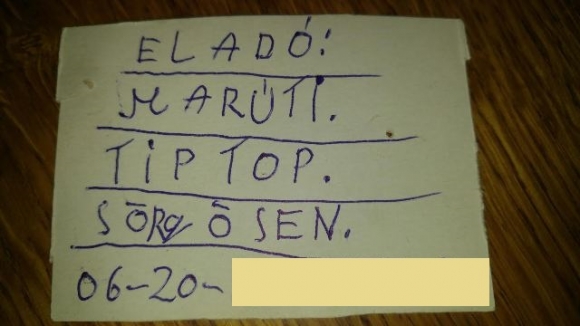 ELADÓ:
MARÚTI.
TIPTOP.
SŌRgŌSEN.
06-20-